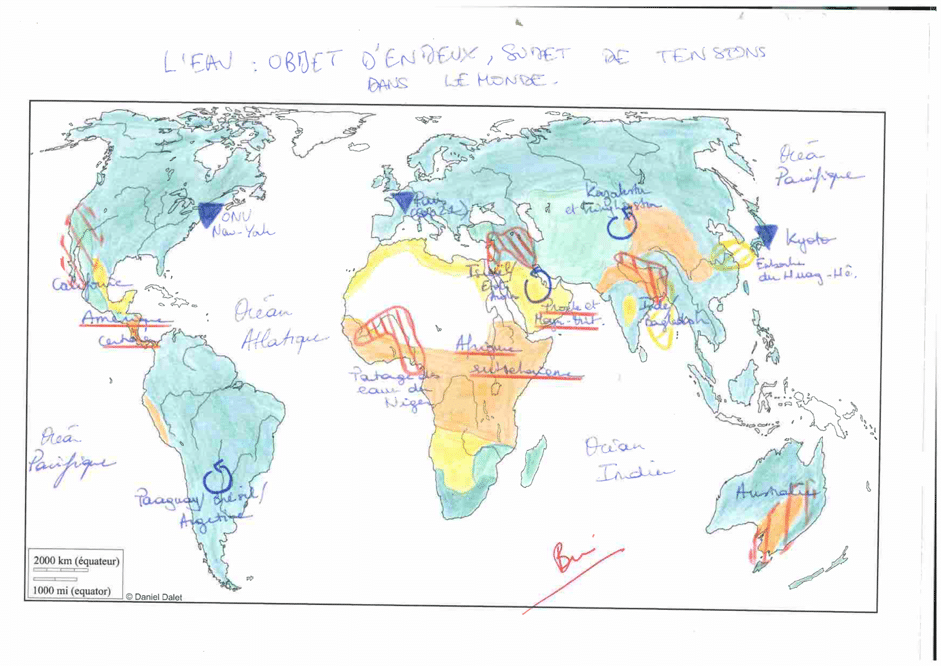 L'EAU : OBJET D'ENJEUX, SUJET DE TENSIONS
DANS LE MONDE.
Océan
Pacifique
ONU
New-York
Paris
Kazakhstan
Kyoto
Californie
Israël
Amérique
centrale
Océan
Atlantique
Proche et
Moyen-Orient.
Inde/
Bangladesh
Afrique
subsaharienne
Partage des
eaux du
Niger
Océan
Pacifique
Océan
Indien
Paraguay/Brésil/
Argentine
Australie
2000 km (équateur)
1000 mi (equator)
© Daniel Dalet